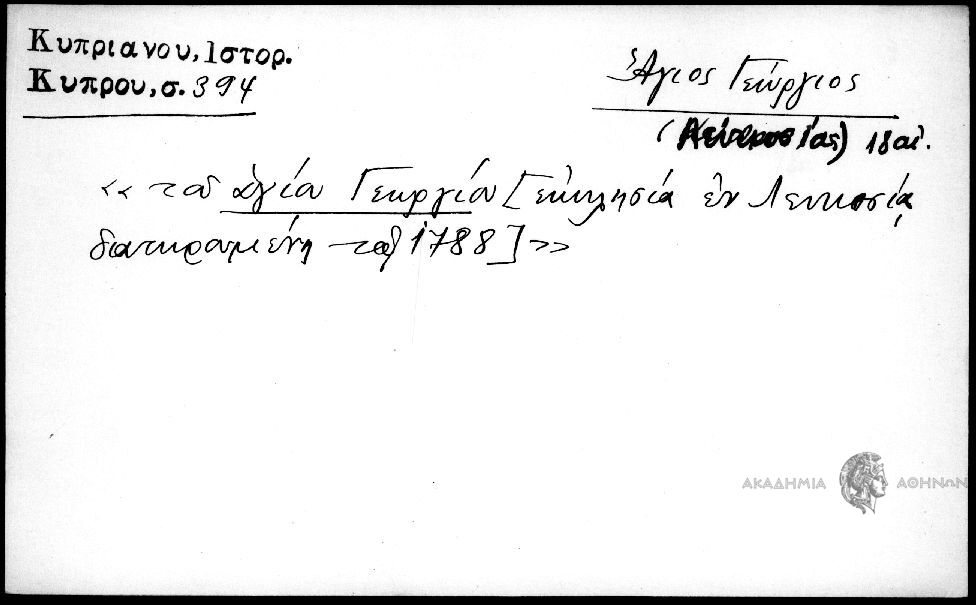 Κυπριανου, Ιστορ.
Κυπρου, σ. 394
Ἅγιος Γεώργιος
(Λευκωσίας) 18 αἰ.
«τοῦ ἁγίου Γεωργίου [ἐκκλησία ἐν Λευκωσίᾳ
διατηρουμένη τῷ 1788]»
ΑΚΑΔΗΜΙΑ ΑΘΗΝΩΝ